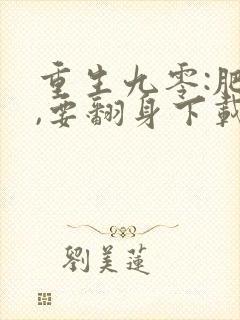 重生九零:肥
,要翻身下載
劉美蓮